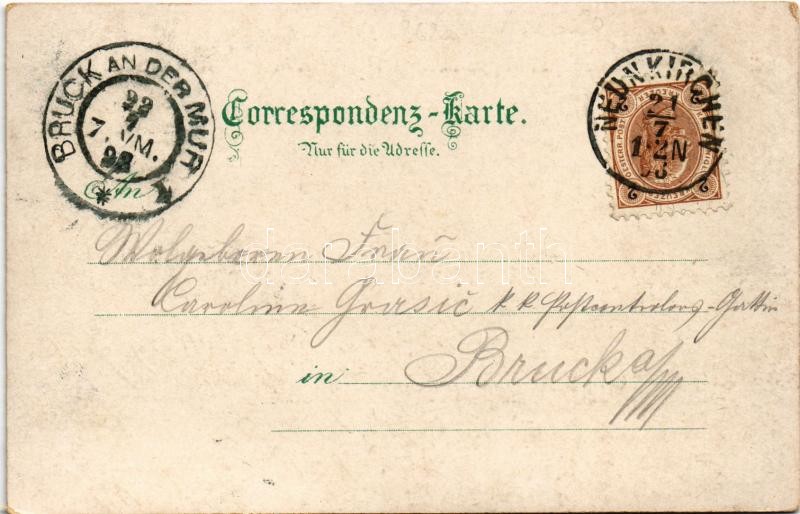 BRUCK AN DER MUR
22
7
7. VM.
98
*
Correspondenz-Karte.
Nur für die Adresse.
NEUNKIRCHEN
21
7
12N
2
2
An
Wolgeboren Frau
Caroline Grasič k k Postcontrolors-Gattin
in Bruck a/M
darabanth